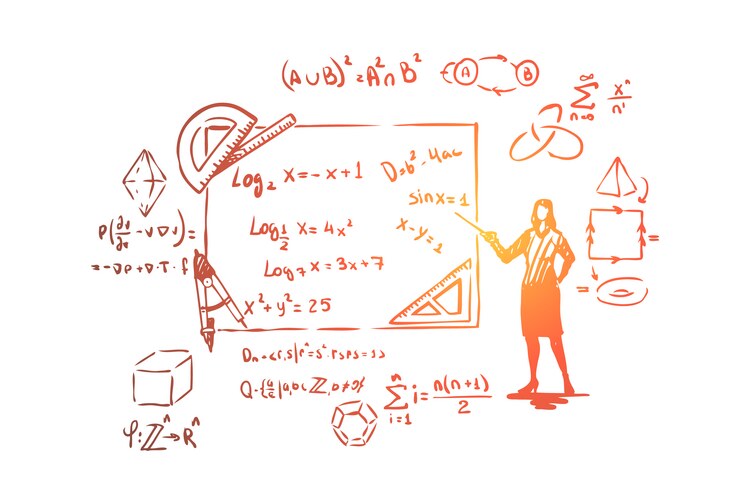 (A∪B)²=A²∩B²
A B
n=0 ∞ ∑ xⁿ/n!
Log₂ x=-x+1
D=b²-4ac
sinx=1
Log½ x=4x²
x-y=1
Log₇x=3x+7
x²+y²=25
P(∂v/∂t -v∇v)=
=-∇p+∇·T·f
=
=
Q-{a/b|a,b∈ℤ,b≠0}
n ∑ i=1 i=n(n+1)/2
φ:ℤⁿ→Rⁿ